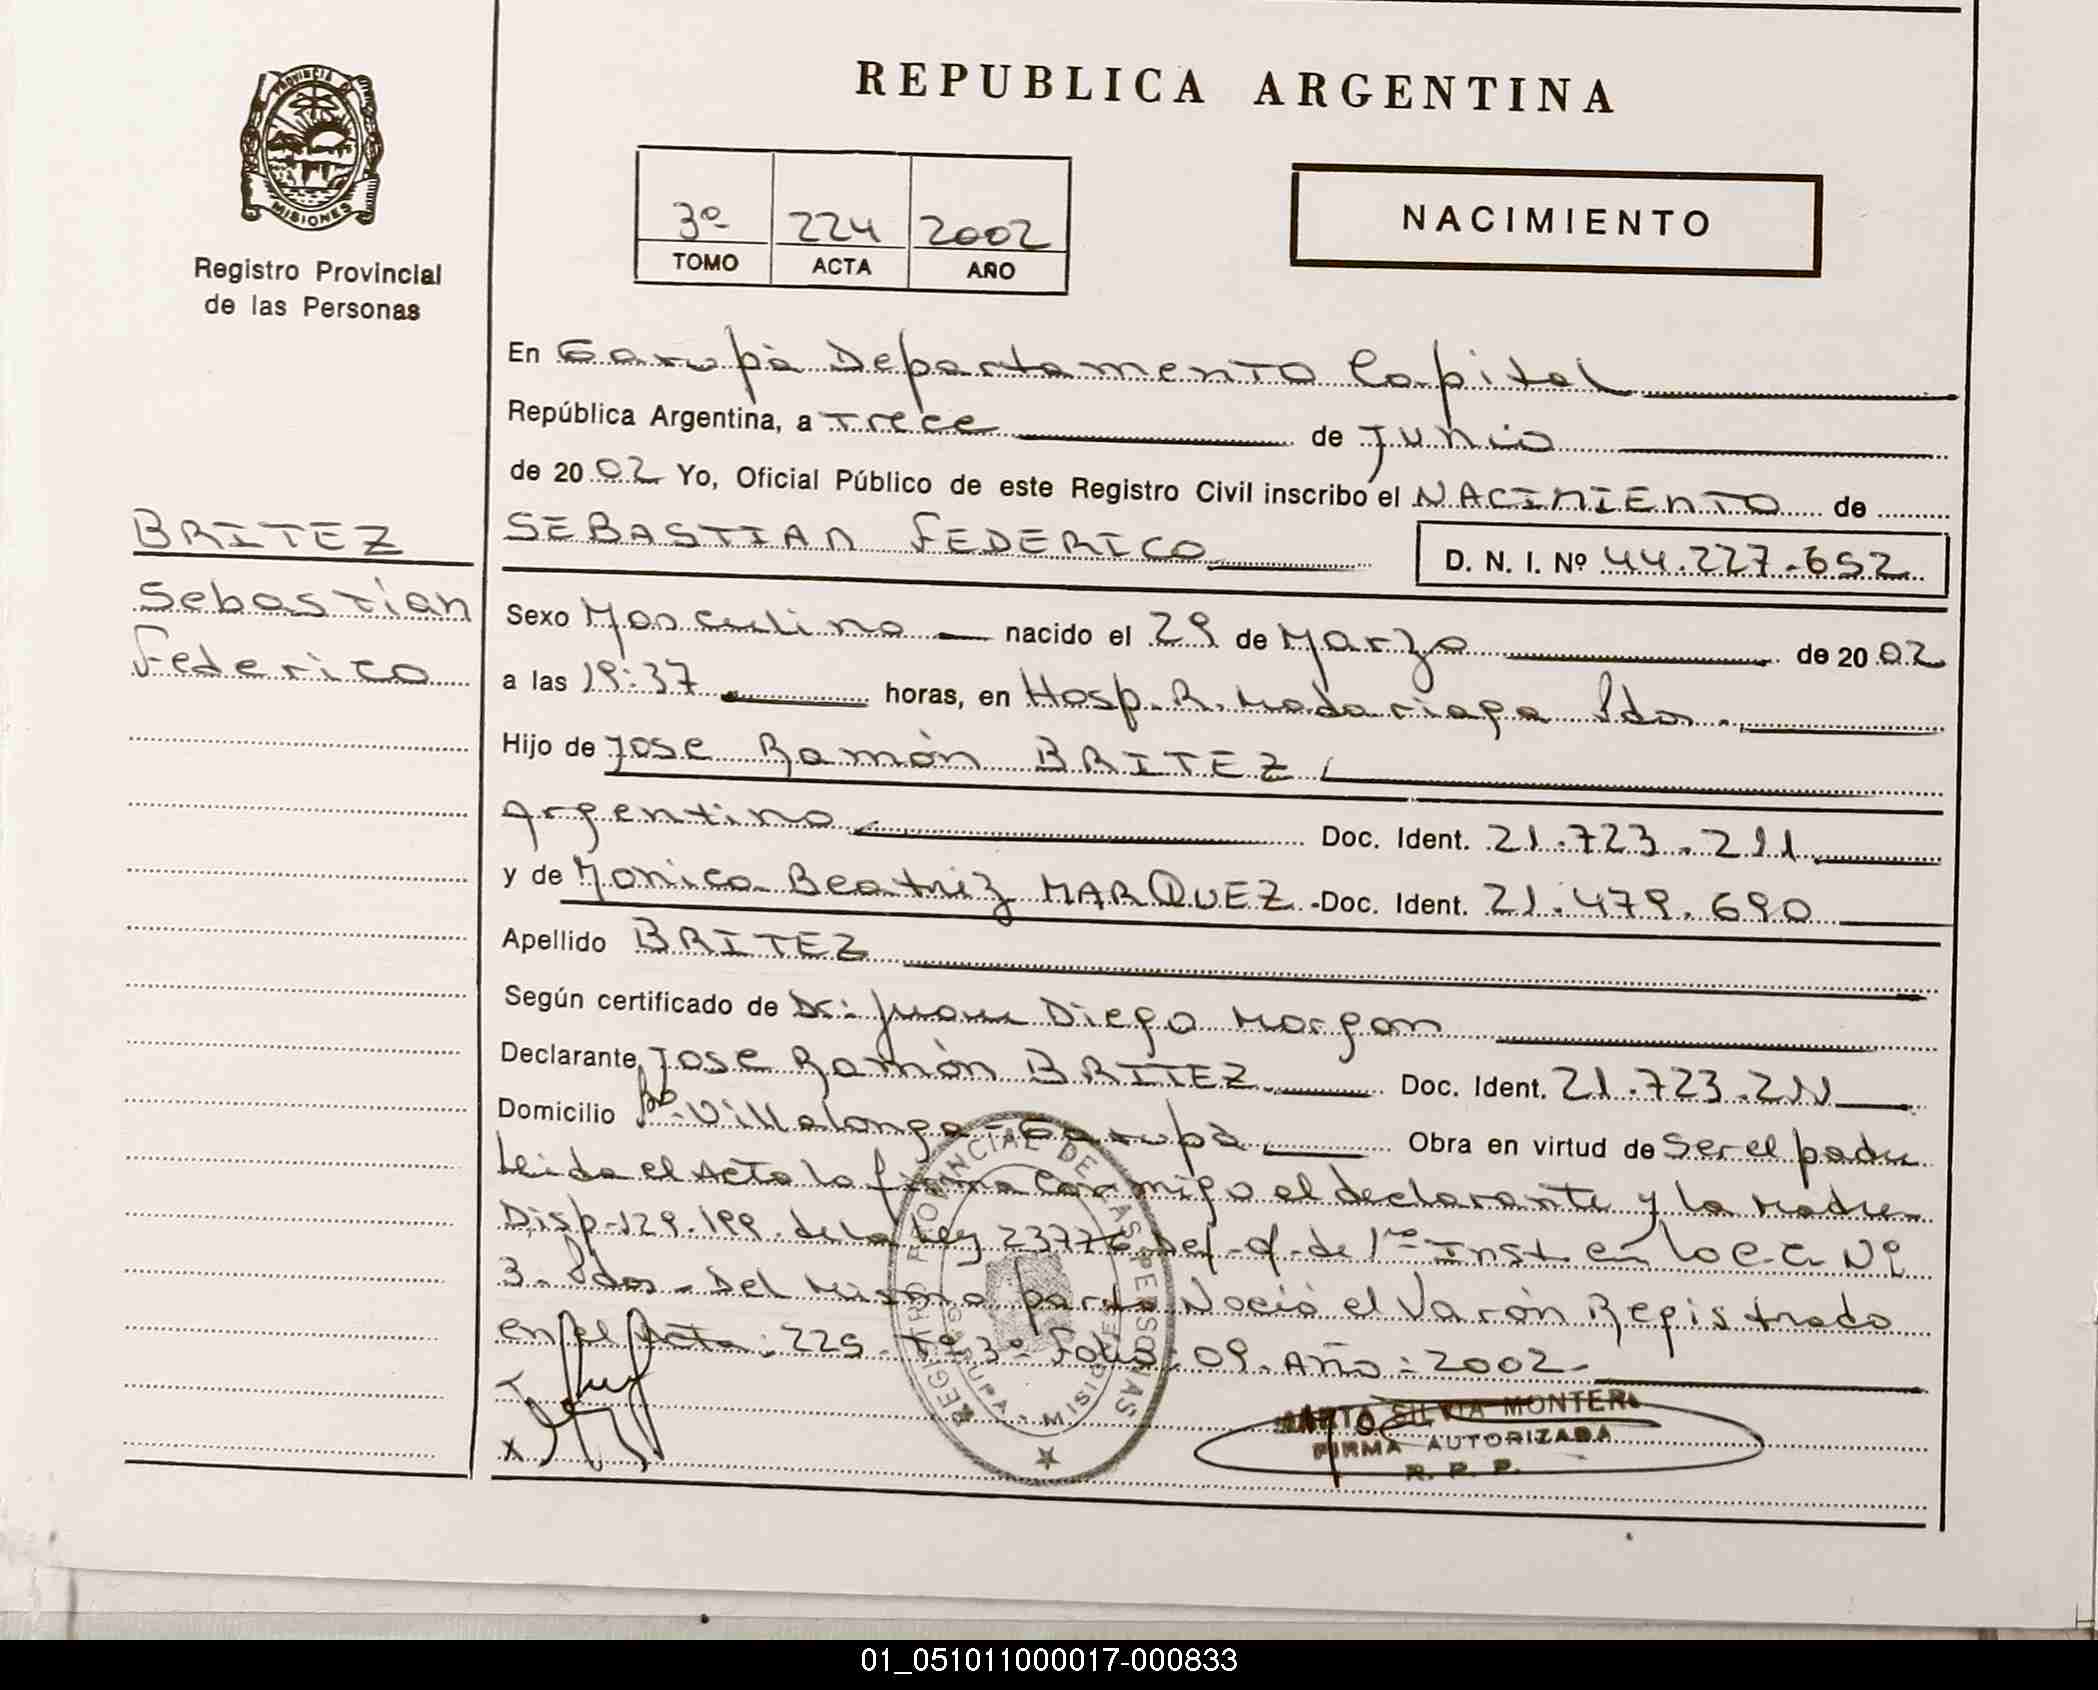 REPUBLICA ARGENTINA
PROVINCIA DE MISIONES
Registro Provincial
de las Personas
3º 224 2002
TOMO ACTA AÑO
NACIMIENTO
En Garupà Departamento Capital
República Argentina, a Trece de Junio
de 2002 Yo, Oficial Público de este Registro Civil inscribo el NACIMIENTO de
BRITEZ
Sebastian
Federico
SEBASTIAN FEDERICO D. N. I. Nº 44.227.652
Sexo Masculino nacido el 29 de Marzo de 2002
a las 19:37 horas, en Hosp. R. Madariaga Pdas.
Hijo de Jose Ramòn BRITEZ
Argentino Doc. Ident. 21.723.211
y de Monica Beatriz MARQUEZ - Doc. Ident. 21.479.690
Apellido BRITEZ
Según certificado de Dr: Juan Diego Morgan
Declarante Jose Ramòn BRITEZ Doc. Ident. 21.723.211
Domicilio Bº Villalonga - Garupà Obra en virtud de Ser el padre
Leida el Acta la firma Conmigo el declarante y la Madre
Disp-129.199. de la Ley 23776 Def. de 1ra Inst en lo C.C. Nº
3. Pdas - Del Mismo parto Naciò el Varòn Registrado
en el Acta: 225. Tº 3º Folio: 09. Año: 2002-
REGISTRO PROVINCIAL DE LAS PERSONAS
GARUPA - MISIONES
X
SILVIA MONTER
FIRMA AUTORIZADA
R. P. P.
01_051011000017-000833